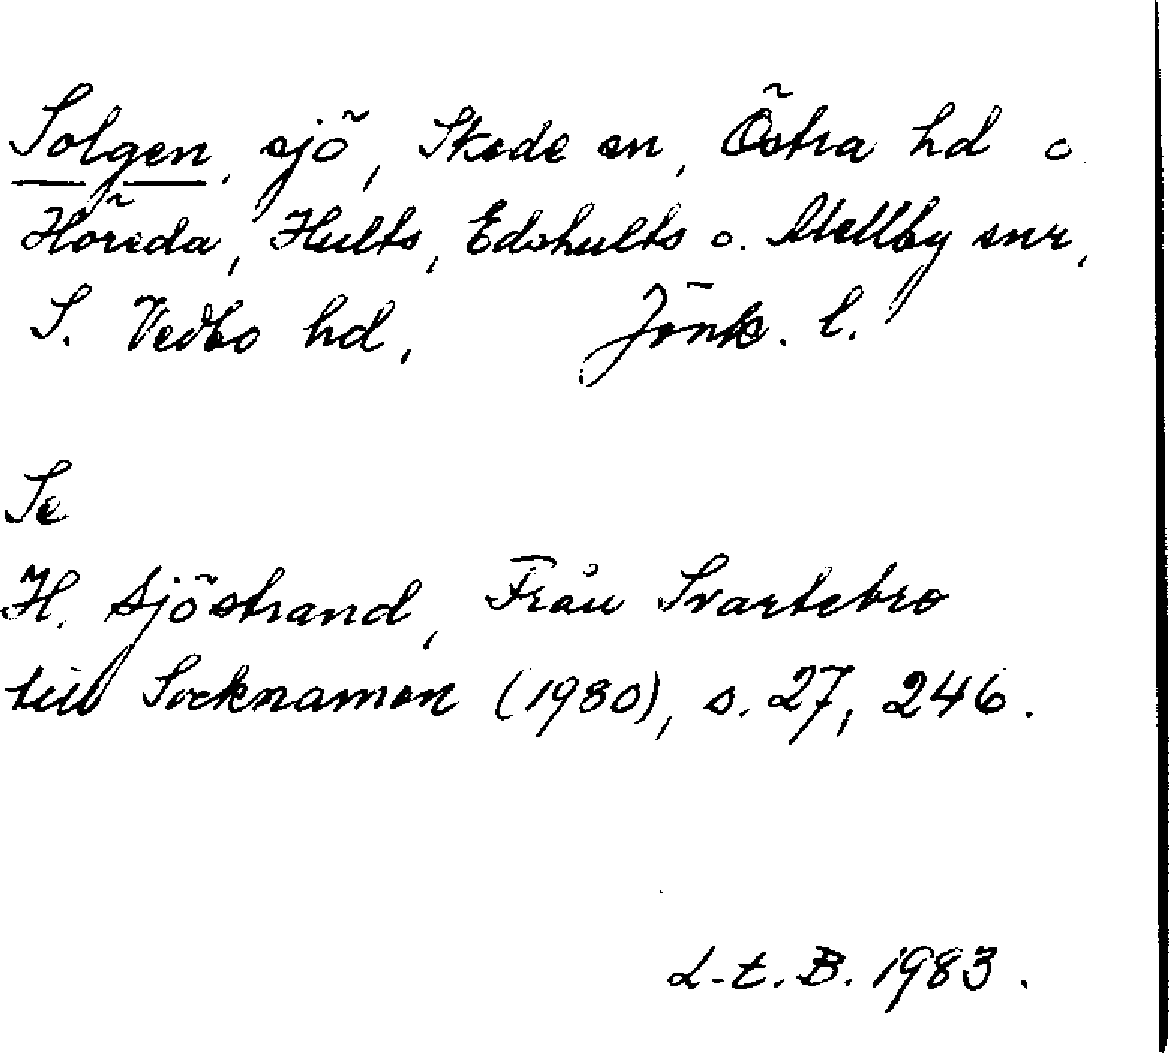 Solgen, sjö, Skede sn, Östra hd o
Höreda, Hults, Edshults o. Mellby snr,
S. Vedbo hd, Jönk. l.
Se
H. Sjöstrand, Från Svartebro
till Socknamen (1980), s. 27, 246.
L-t. B. 1983.